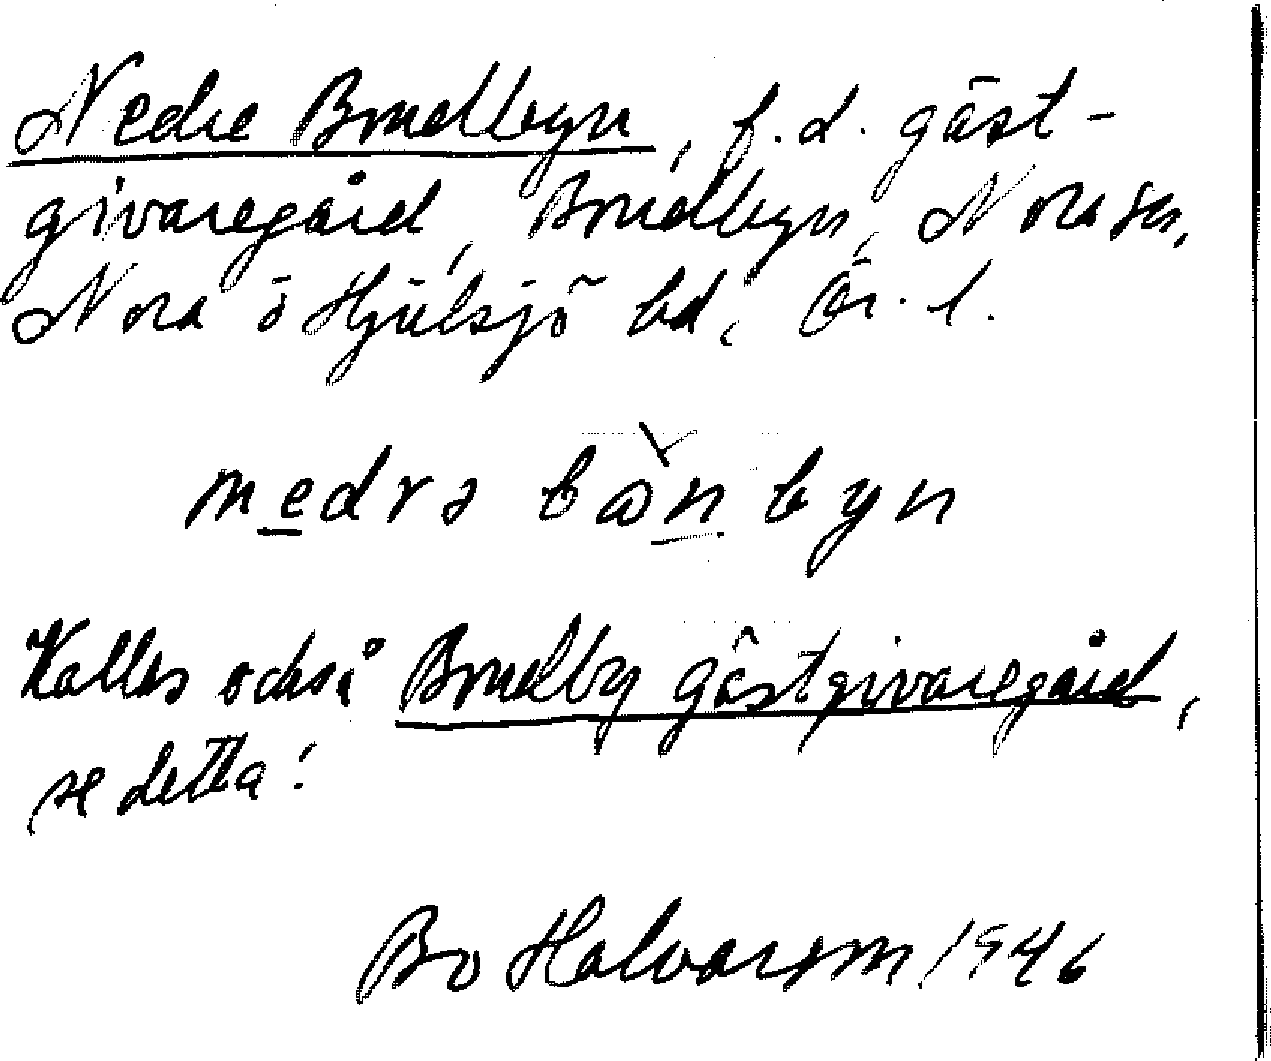 Nedre Bondbyn, f.d. gäst-
givaregård, Bondbyn, Nora sn,
Nora o Hjulsjö bd, Ör. l.
nedrə bònbyn
Kallas också Bondby gästgivaregård,
se detta!
Bo Halvarson 1946